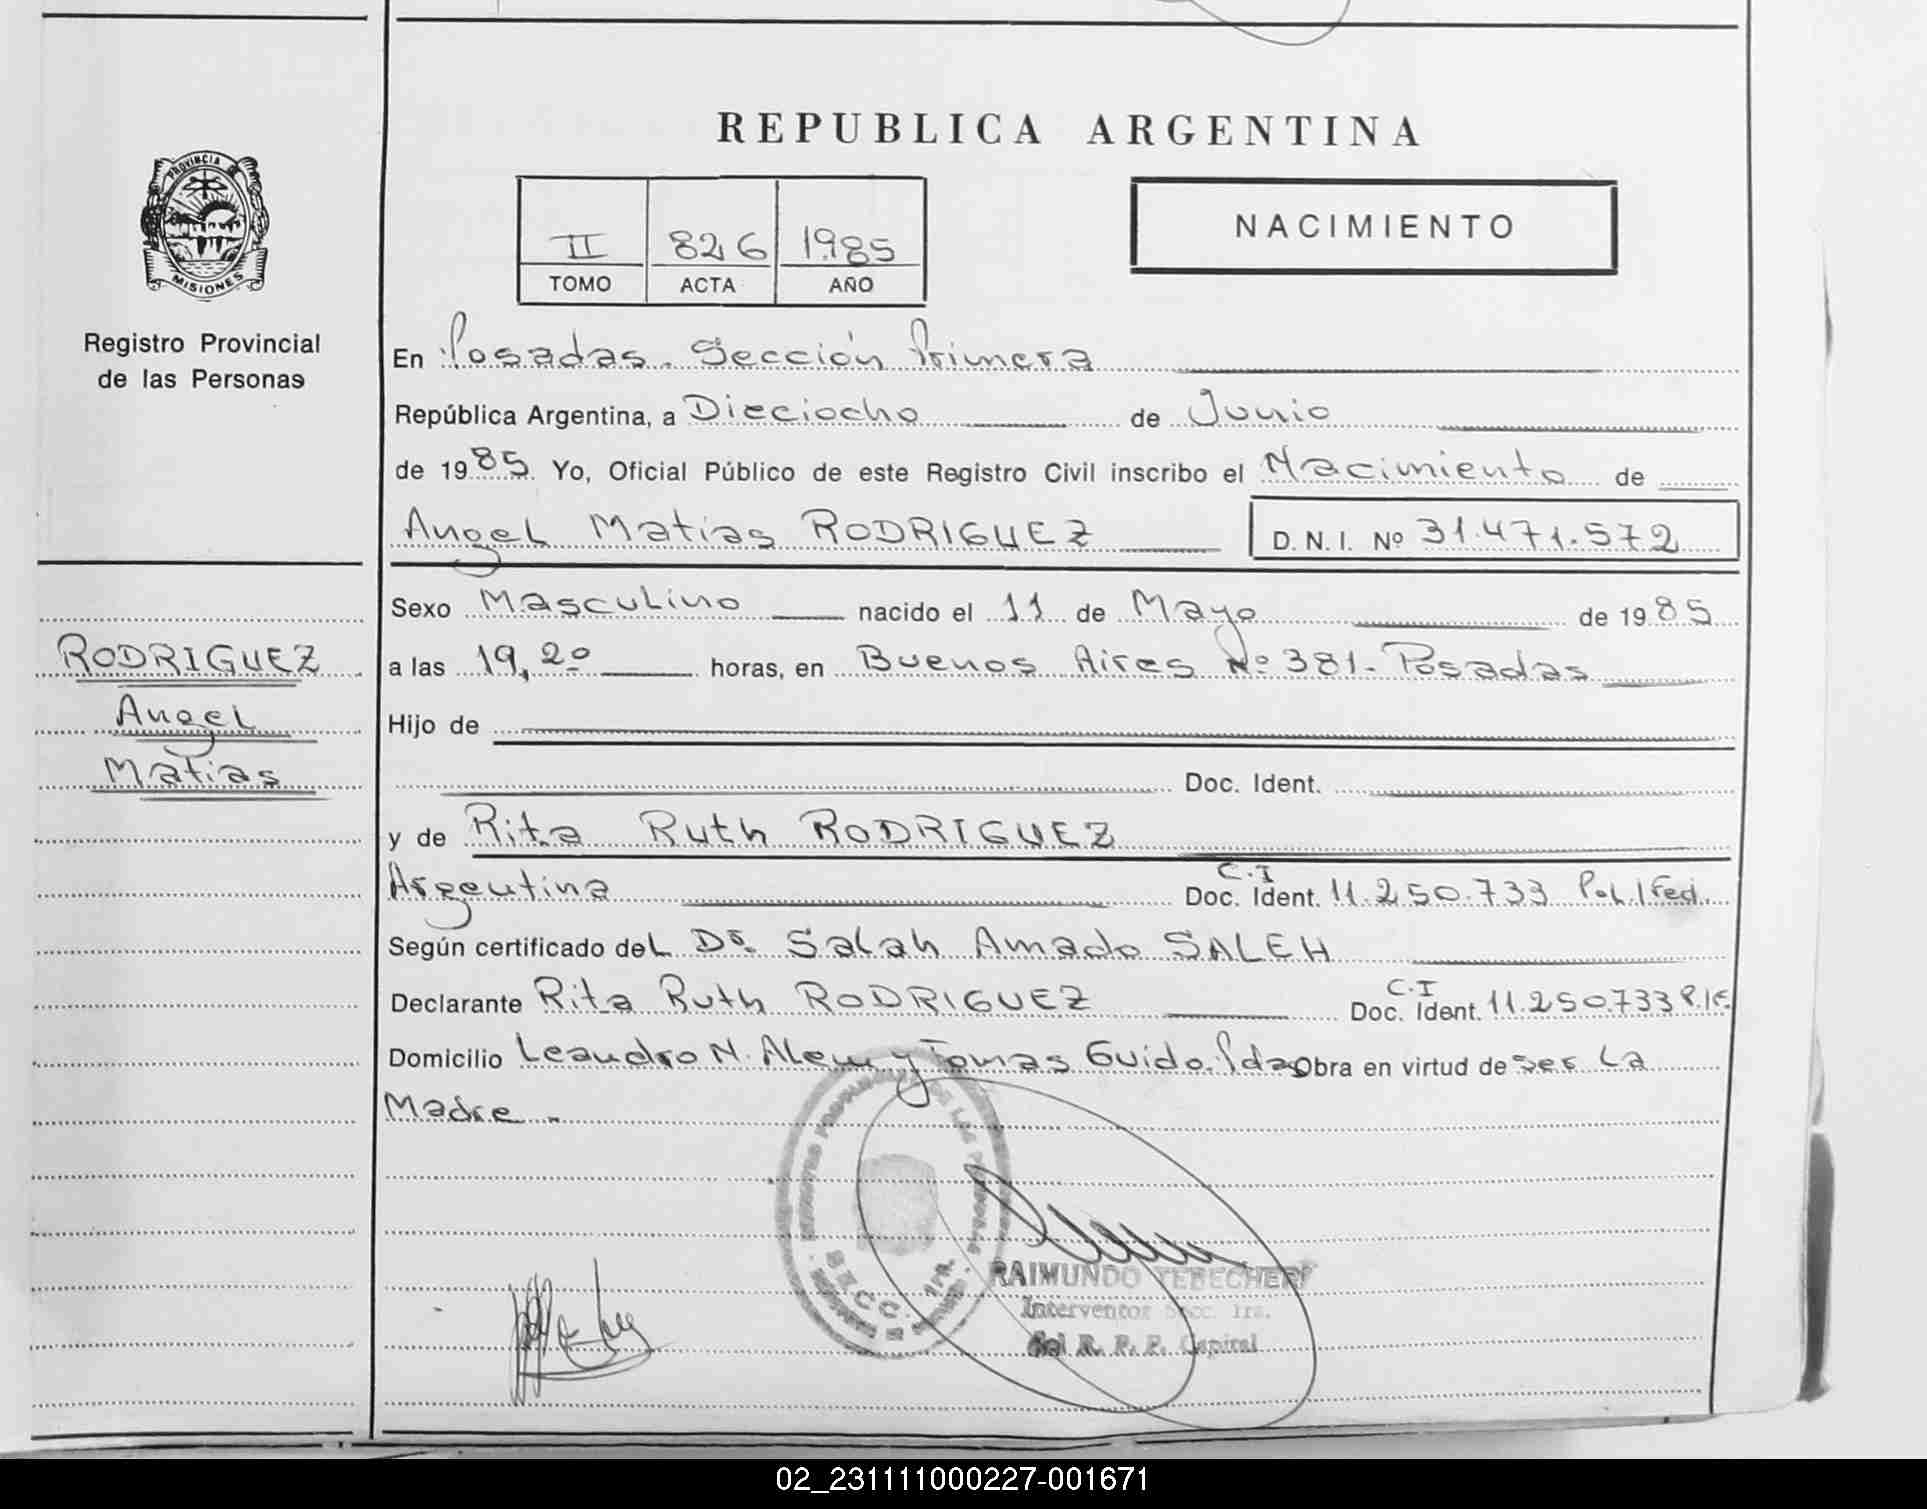 REPUBLICA ARGENTINA
PROVINCIA DE
MISIONES
Registro Provincial
de las Personas
II 826 1985
TOMO ACTA AÑO
NACIMIENTO
En Posadas. Sección Primera
República Argentina, a Dieciocho de Junio
de 1985. Yo, Oficial Público de este Registro Civil inscribo el Nacimiento de
Angel Matias RODRIGUEZ D. N. I. Nº 31.471.572
RODRIGUEZ
Angel
Matias
Sexo Masculino nacido el 11 de Mayo de 1985
a las 19,20 horas, en Buenos Aires Nº 381- Posadas
Hijo de
Doc. Ident.
y de Rita Ruth RODRIGUEZ
Argentina C.I Doc. Ident. 11.250.733 Pol./Fed.
Según certificado del Dr. Salah Amado SALEH
Declarante Rita Ruth RODRIGUEZ C.I Doc. Ident. 11.250.733 P./F.
Domicilio Leandro N. Alem y Tomas Guido. Pdas Obra en virtud de ser la
Madre.
SECC. 1ra.
RAIMUNDO YEBECHERI
Interventor Secc. 1ra.
del R. P. P. Capital
02_231111000227-001671